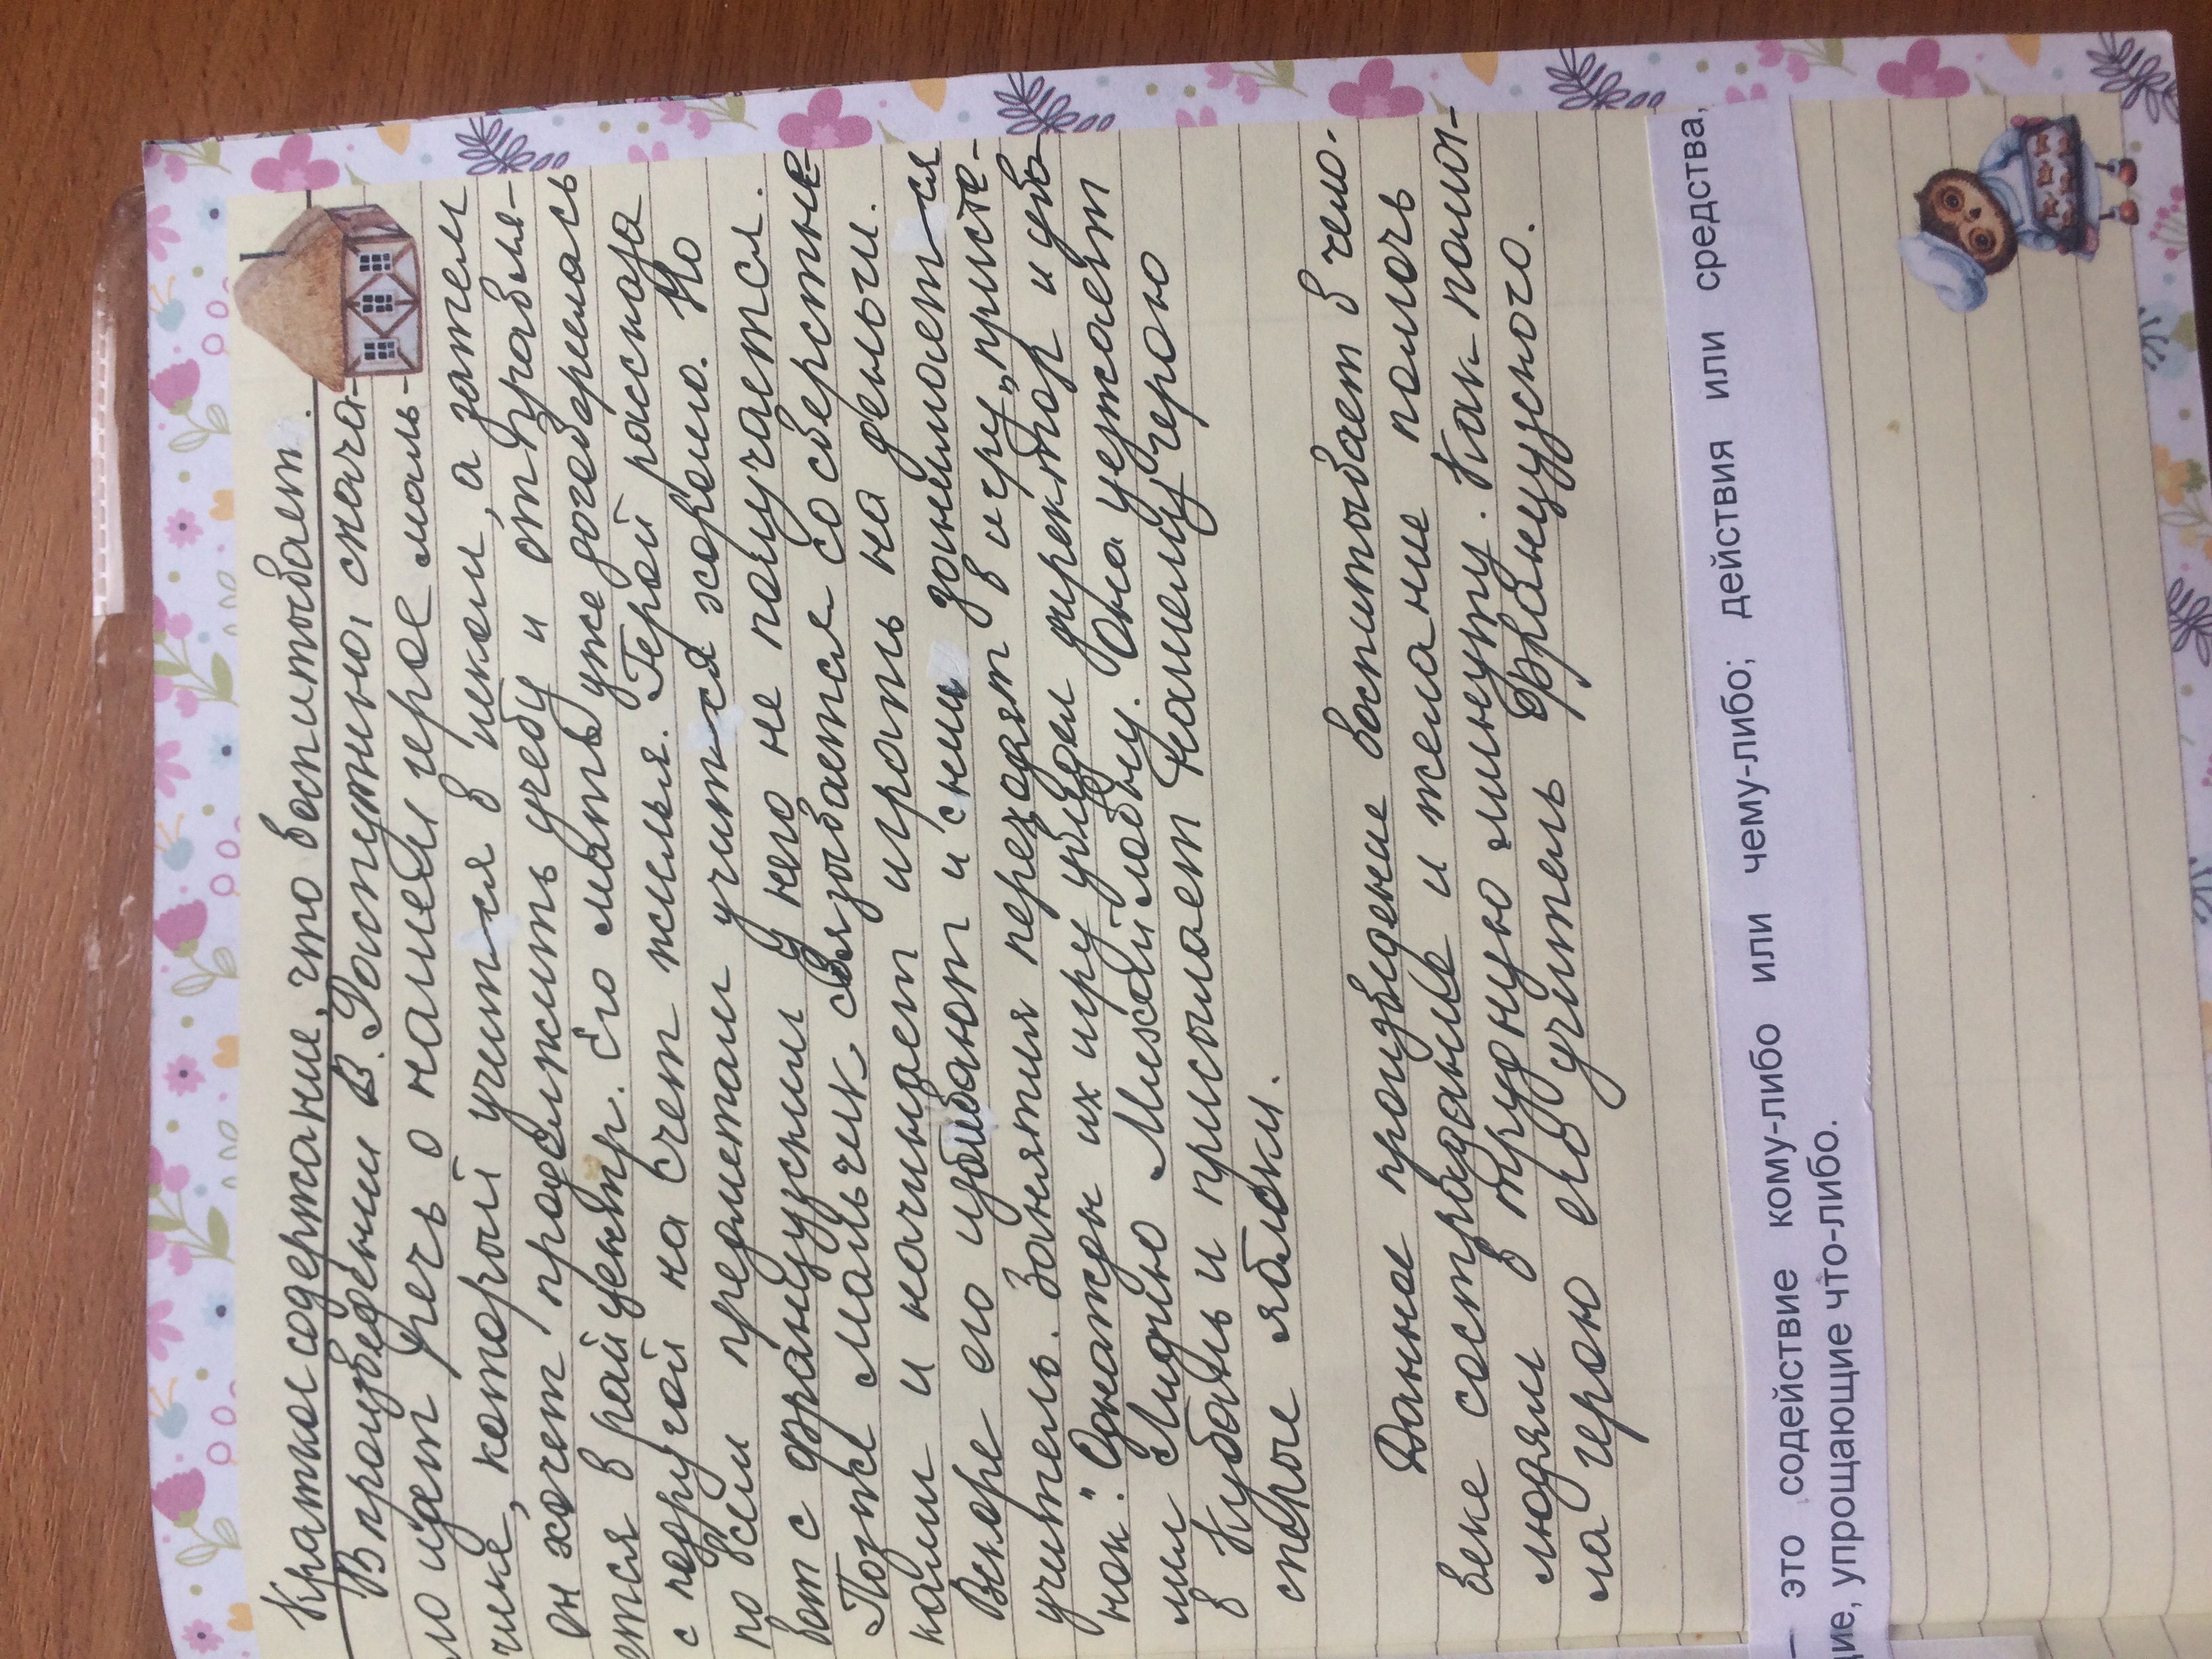 Краткое содержание, что воспитывает.
В произведении В. Распутино, снача-
ло идет речь о нашем герое маль-
чике, который учится в школе, а затем
он хочет продолжить учебу и отправля-
ется в райцентр. Его мать уже договорилась
с подругой на счет жилья. Герой рассказа
по всем предметам учится хорошо. Но
вот с французским у него не получается.
Позже мальчик связывается со сверстни-
ками и начинает играть на деньги.
Вскоре его избивают и с ним занимается
учитель. Занятия переходят в игру „присте-
нок". Однажды их игру увидел директор и уво-
лил Лидию Михайловну. Она уезжает
в Кубань и присылает нашему герою
спелые яблоки.
Данное произведение воспитывает в чело-
веке сострадание и желание помочь
людям в трудную минуту. Как помог-
ла герою его учитель французского.
— это содействие кому-либо или чему-либо; действия или средства,
щие, упрощающие что-либо.